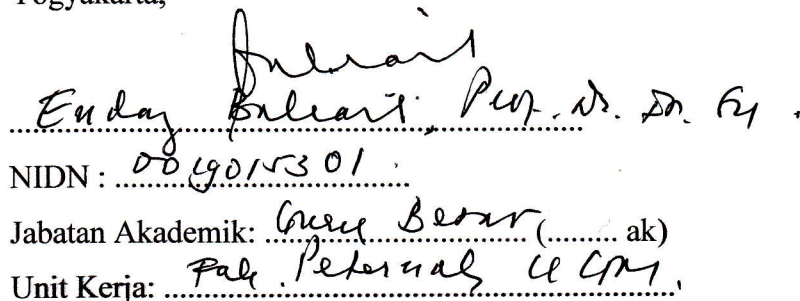 Yogyakarta,
Endang Baliarti, Prof. Ir. Dr.
NIDN : 0019015301
Jabatan Akademik: Guru Besar (........ ak)
Unit Kerja: Fak. Peternakan UGM